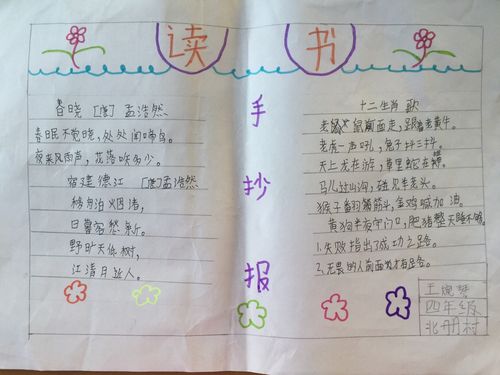 读书
手抄报
春晓 [唐] 孟浩然
春眠不觉晓，处处闻啼鸟。
夜来风雨声，花落知多少。
宿建德江 [唐]孟浩然
移舟泊烟渚，
日暮客愁新。
野旷天低树，
江清月近人。
十二生肖 歌
老鼠前面走，跟着老黄牛。
老虎一声吼，兔子抖三抖。
天上龙在游，草里蛇在
马儿过山沟，碰见羊老头。
猴子翻筋斗，金鸡喊加油。
黄狗半夜守门口，肥猪整天睡不够。
1.失败指出了成功之路各。
2.无畏的人前面才有路。
王婉
四年级
北册村